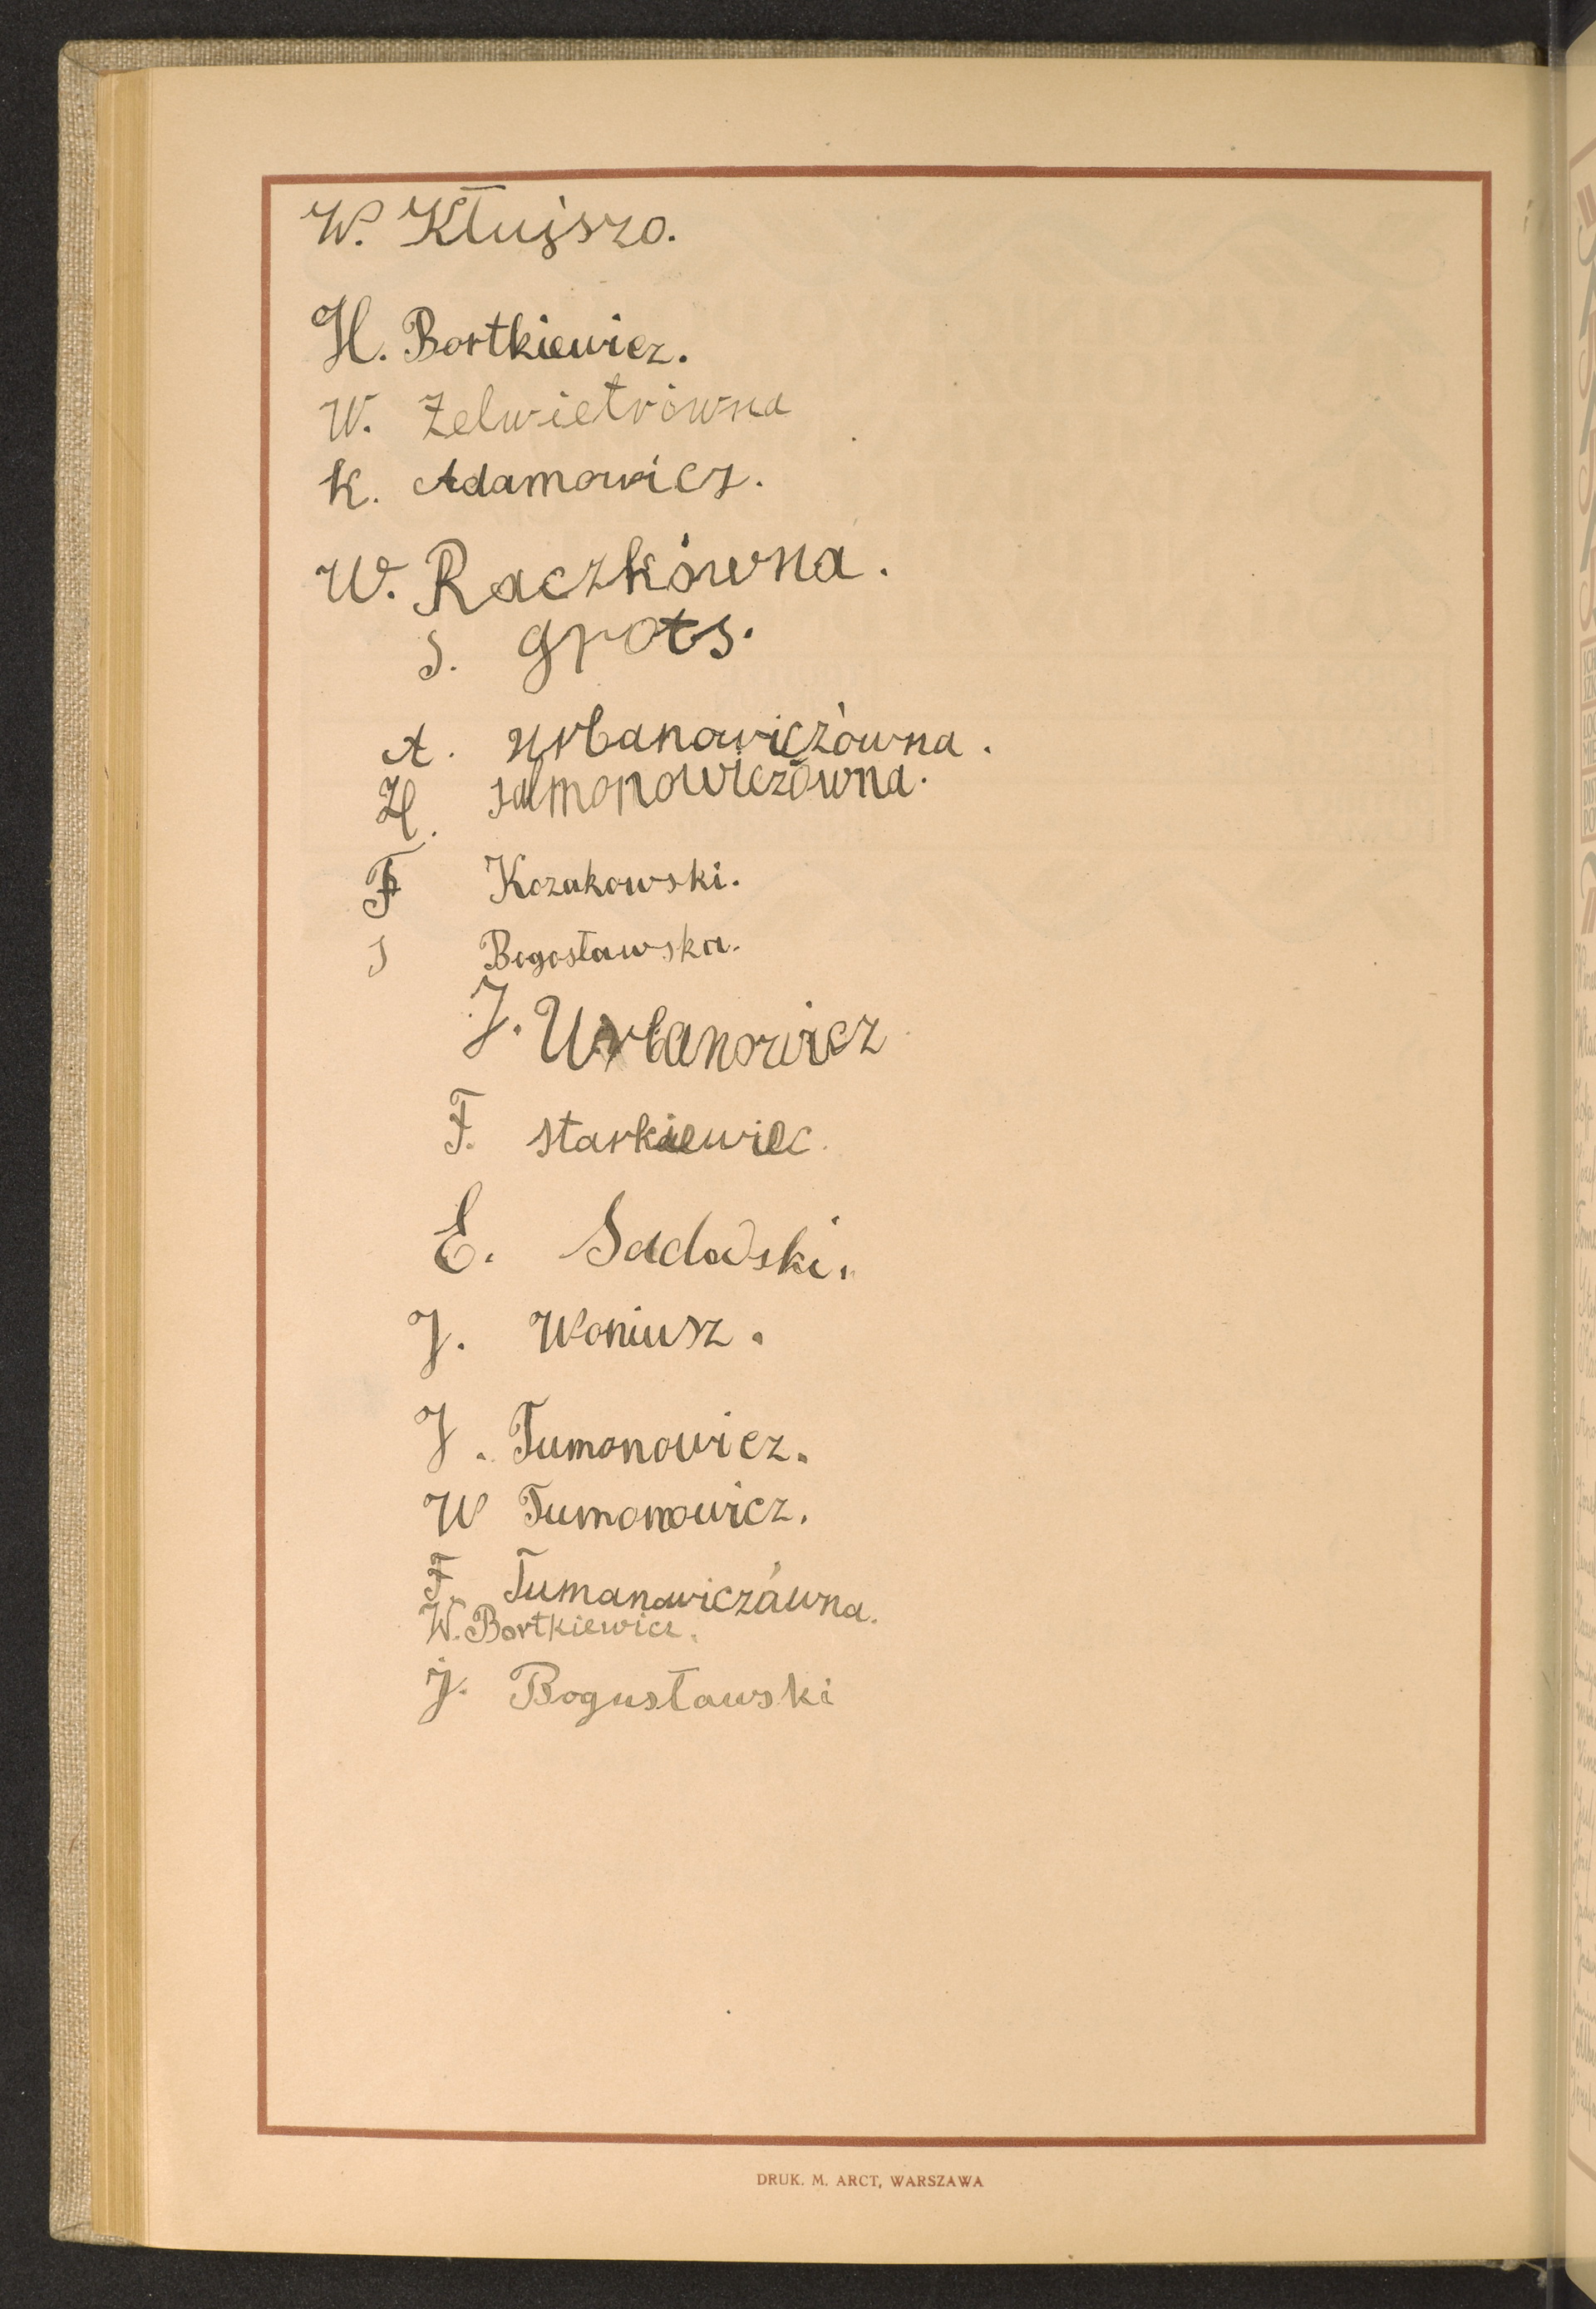 W. Kłujszo.
H. Bortkiewicz.
W. Żelwietrówna
K. Adamowicz.
W. Raczkówna.
S. Grots.
A. Urbanowiczówna.
H. Salmonowiczówna.
F Kozakowski.
J Bogosławska.
J. Urbanowicz
F. Starkiewiec.
E. Sadowski.
J. Woniusz.
J. Tumonowicz.
W Tumonowicz.
F. Tumanowiczówna.
W. Bortkiewicz.
J. Bogusławski
DRUK. M. ARCT, WARSZAWA